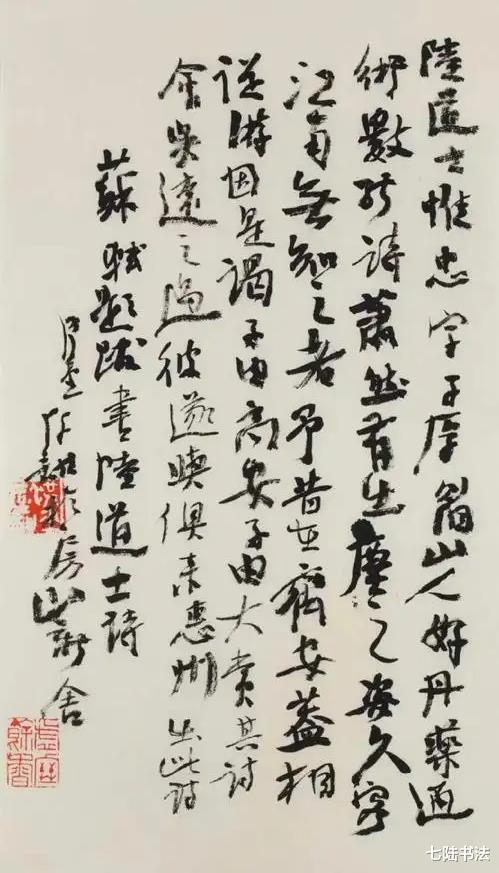 陸道士惟忠字子厚眉山人好丹藥通
術數能詩蕭然有出塵之姿久客
江南無知之者予昔在齊安蓋相
從游因是謁子由高安子由大賞其詩
會吳遠之過彼遂與俱來惠州出此詩
蘇軾題跋書陸道士詩
房山新舍
七陸书法